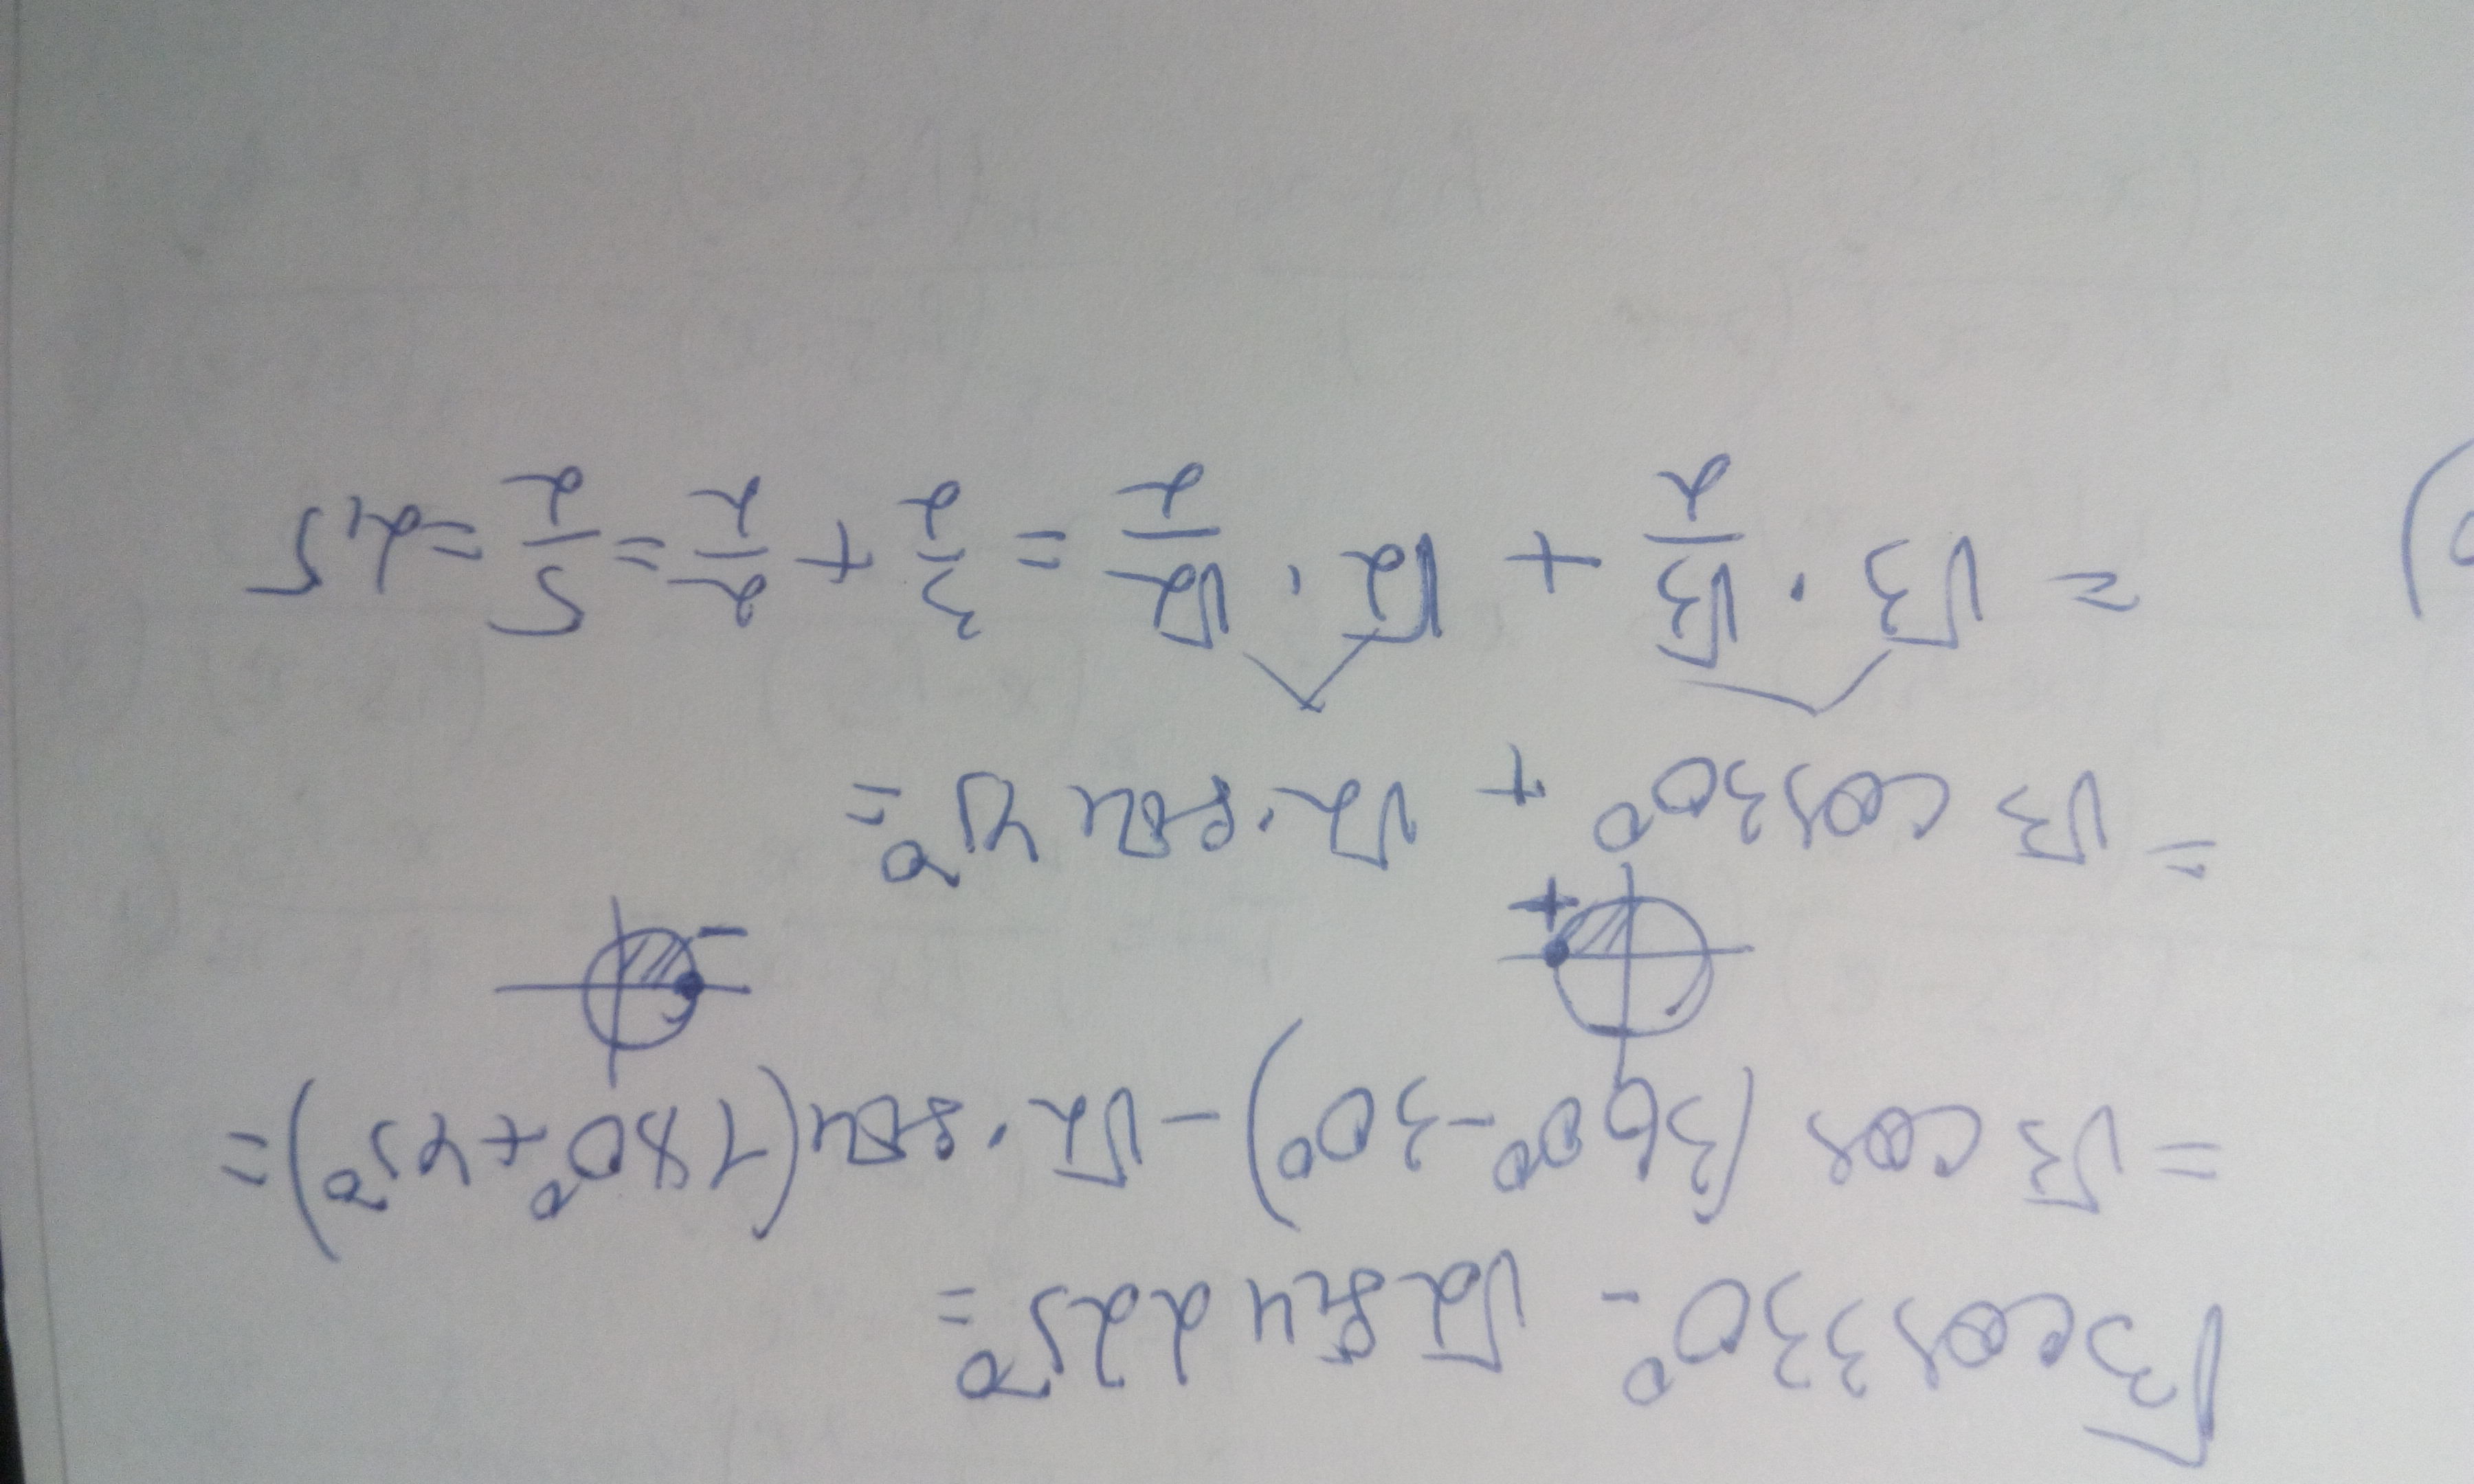 √3cos330° - √2 sin 225° =
= √3 cos (360° - 30°) - √2 · sin(180° + 45°) =
+ -
= √3 cos30° + √2 · sin 45° =
= √3 · √3/2 + √2 · √2/2 = 3/2 + 2/2 = 5/2 = 2,5